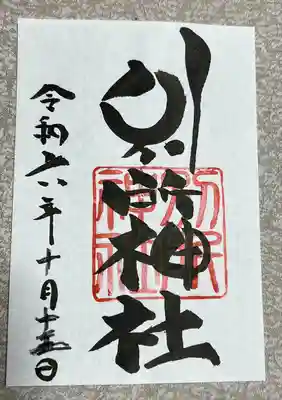 別所神社
別所
神社
令和六年十月十五日